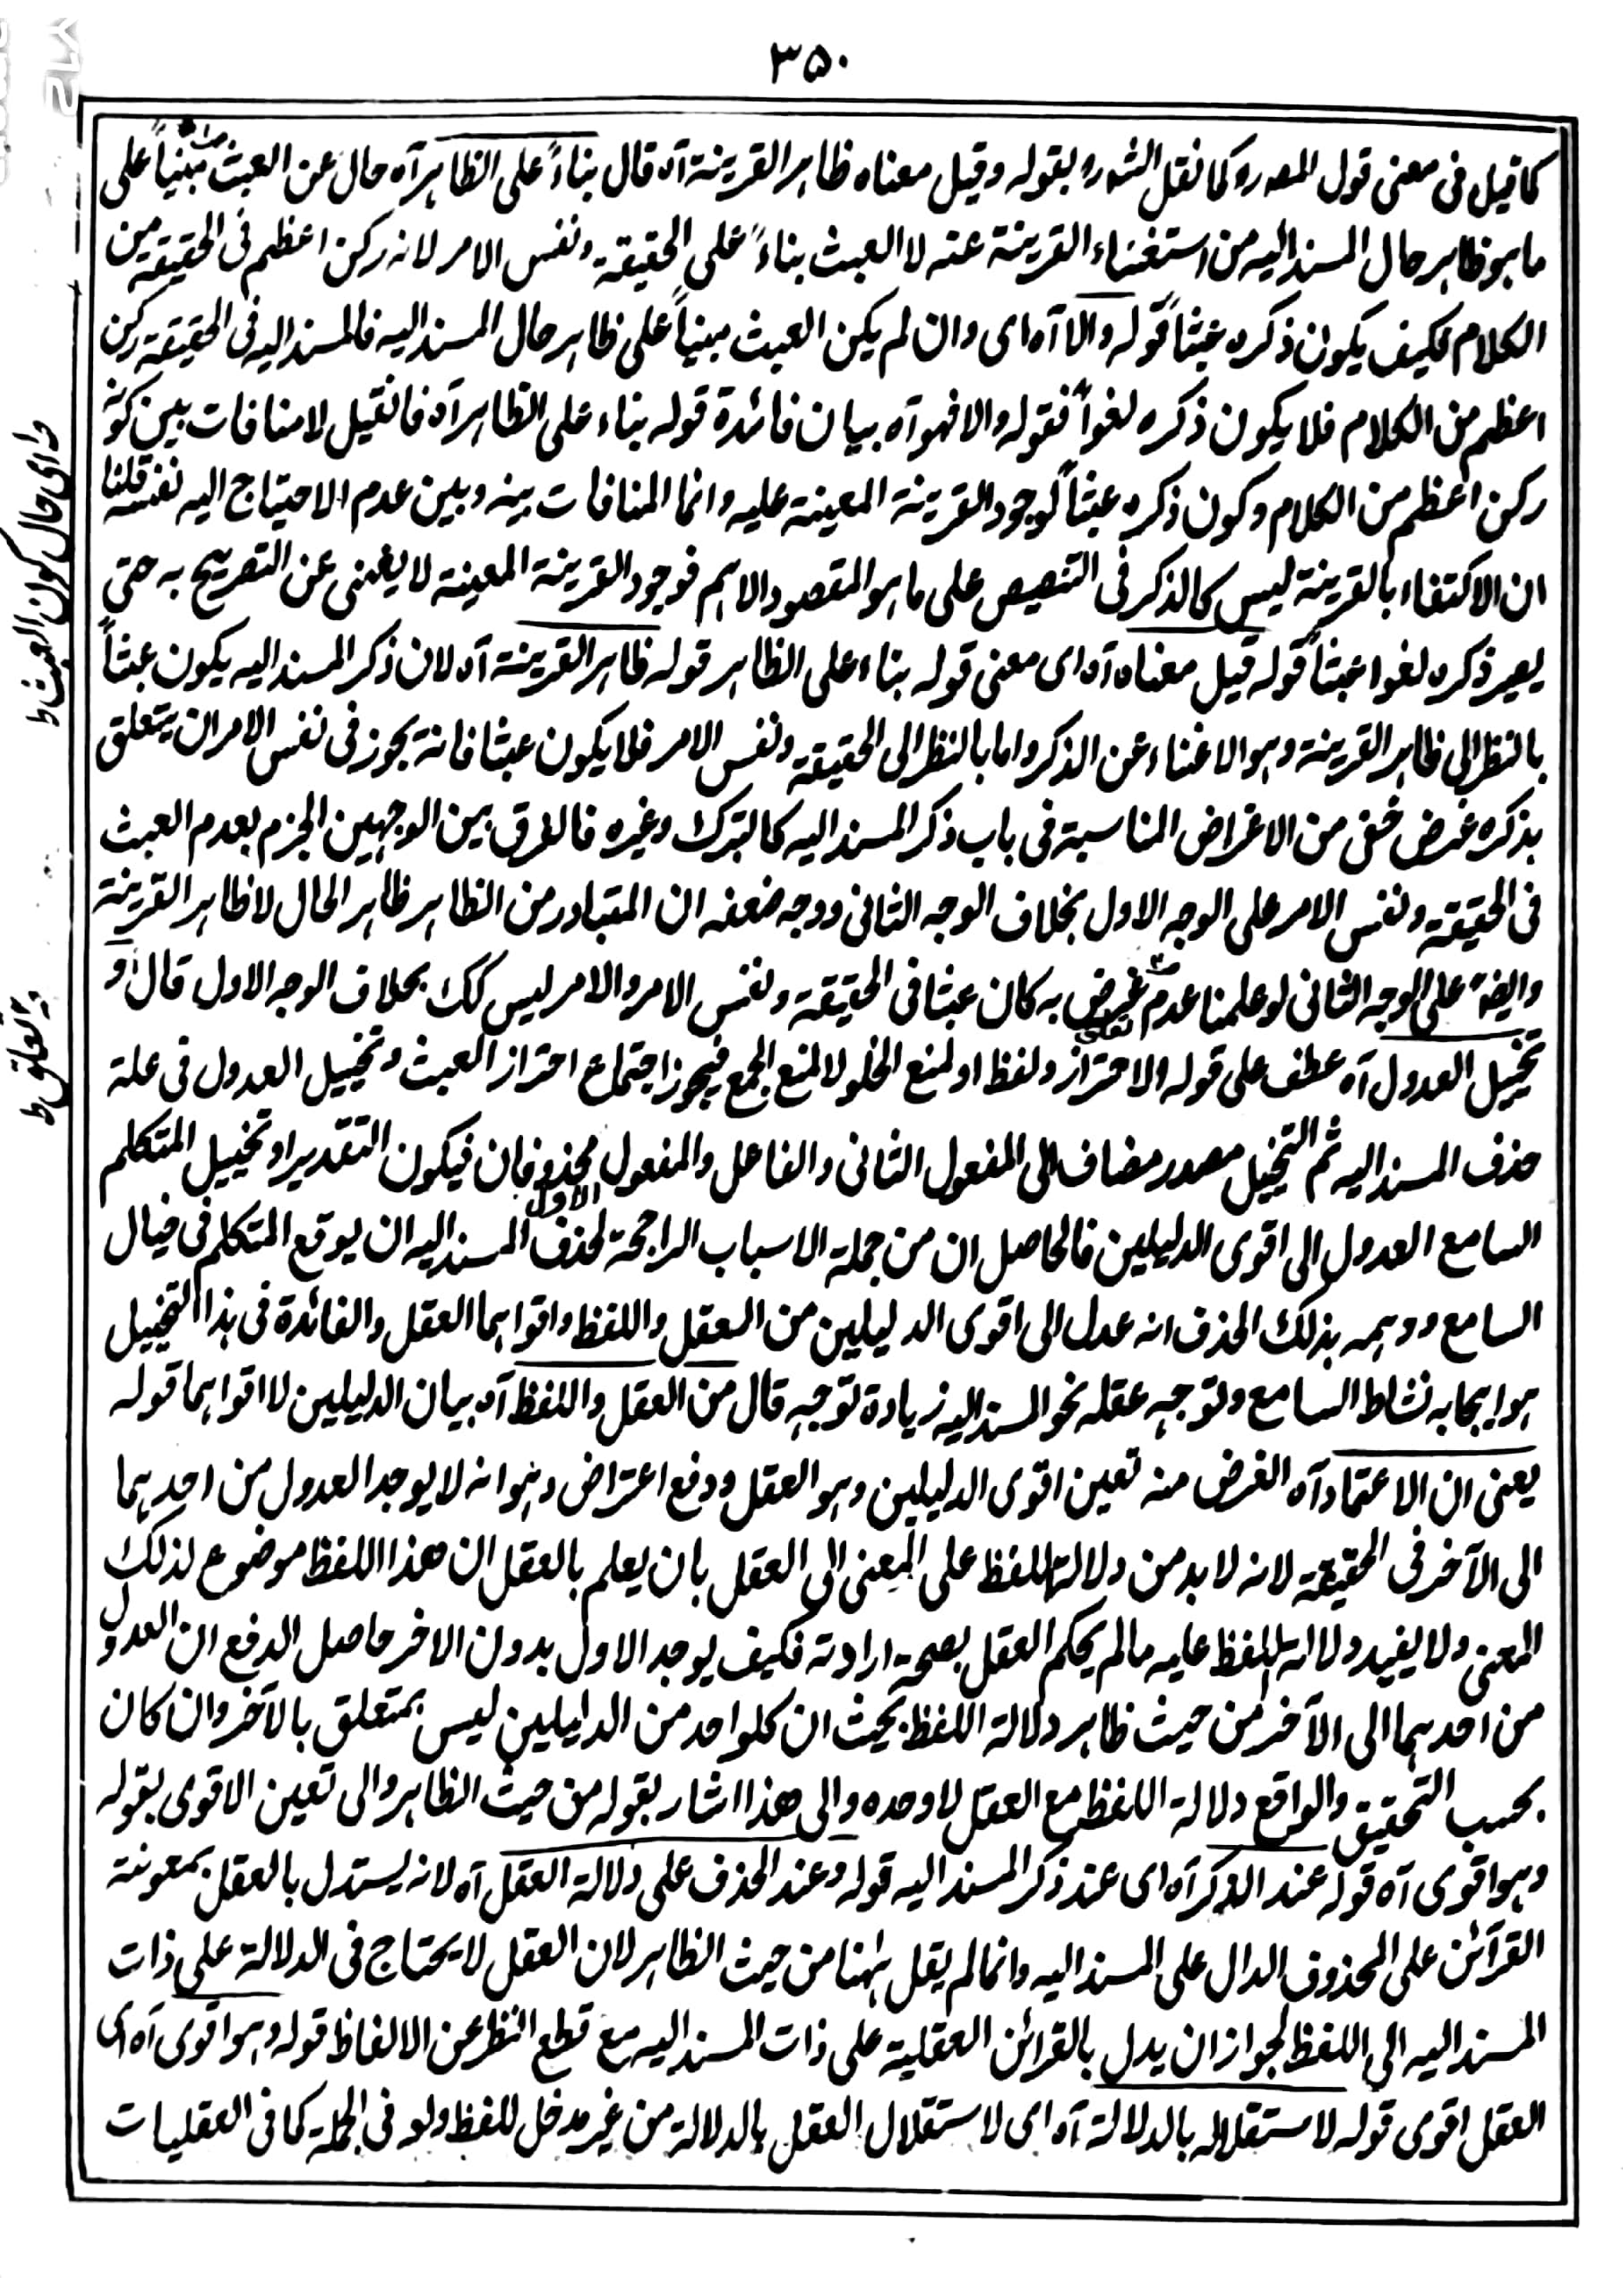 ۳۵۰
كما قيل فى معنى قول المص رو كما نقل الش ره بقوله وقيل معناه ظاهر القرينة آه قال بناءً على الظاهر آه حال عن العبث مبنياً على
ما هو ظاهر حال المسند اليه من استغناء القرينة عنه لا العبث بناءً على الحقيقة ونفس الامر لانه ركن اعظم فى الحقيقة من
الكلام فكيف يكون ذكره عبثاً قوله والا آه اى وان لم يكن العبث مبنياً على ظاهر حال المسند اليه فالمسند اليه فى الحقيقة ركن
اعظم من الكلام فلا يكون ذكره لغواً فقوله والا فهو آه بيان فائدة قوله بناء على الظاهر آه فان قيل لا منافات بين كونه
ركن اعظم من الكلام وكون ذكره عبثاً لوجود القرينة المعينة عليه وانما المنافات بينه وبين عدم الاحتياج اليه نفسه قلنا
ان الاكتفاء بالقرينة ليس كالذكر فى التنصيص على ما هو المقصود الاهم فوجود القرينة المعينة لا يغنى عن التصريح به حتى
يصير ذكره لغوا عبثاً قوله قيل معناه آه اى معنى قوله بناء على الظاهر قوله ظاهر القرينة آه لان ذكر المسند اليه يكون عبثاً
بالنظر الى ظاهر القرينة وهو الاغناء عن الذكر واما بالنظر الى الحقيقة ونفس الامر فلا يكون عبثا فانه يجوز فى نفس الامر ان يتعلق
بذكره غرض خفى من الاغراض المناسبة فى باب ذكر المسند اليه كالتبرك وغيره فالفرق بين الوجهين الجزم بعدم العبث
فى الحقيقة ونفس الامر على الوجه الاول بخلاف الوجه الثانى ووجه ضعفه ان المتبادر من الظاهر ظاهر الحال لا ظاهر القرينة
وايضا على الوجه الثانى لو علمنا عدم غرض به كان عبثا فى الحقيقة ونفس الامر والامر ليس كك بخلاف الوجه الاول قال او
تخييل العدول آه عطف على قوله والاحتراز ولفظ او لمنع الخلو لا لمنع الجمع فيجوز اجتماع احتراز العبث وتخييل العدول فى علة
حذف المسند اليه ثم التخييل مصدر مضاف الى المفعول الثانى والفاعل والمفعول الاول محذوفان فيكون التقدير او تخييل المتكلم
السامع العدول الى اقوى الدليلين فالحاصل ان من جملة الاسباب الراجحة لحذف المسند اليه ان يوقع المتكلم فى خيال
السامع ووهمه بذلك الحذف انه عدل الى اقوى الدليلين من العقل واللفظ واقواهما العقل والفائدة فى هذا التخييل
هو ايجابه نشاط السامع وتوجه عقله نحو المسند اليه زيادة توجه قال من العقل واللفظ آه بيان الدليلين لا اقواهما قوله
يعنى ان الاعتماد آه الغرض منه تعين اقوى الدليلين وهو العقل ودفع اعتراض وهو انه لا يوجد العدول من احدهما
الى الآخر فى الحقيقة لانه لا بد من دلالة اللفظ على المعنى الى العقل بان يعلم بالعقل ان هذا اللفظ موضوع لذلك
المعنى ولا يفيد دلالة اللفظ عليه ما لم يحكم العقل بصحة ارادته فكيف يوجد الاول بدون الاخر حاصل الدفع ان العدول
من احدهما الى الآخر من حيث ظاهر دلالة اللفظ بحيث ان كلواحد من الدليلين ليس بمتعلق بالآخر وان كان
بحسب التحقيق والواقع دلالة اللفظ مع العقل لا وحده والى هذا اشار بقوله من حيث الظاهر والى تعين الاقوى بقوله
وهو اقوى آه قوله عند الذكر آه اى عند ذكر المسند اليه قوله وعند الحذف على دلالة العقل آه لانه يستدل بالعقل بمعونة
القرآئن على المحذوف الدال على المسند اليه وانما لم يقل ههنا من حيث الظاهر لان العقل لا يحتاج فى الدلالة على ذات
المسند اليه الى اللفظ لجواز ان يدل بالقرائن العقلية على ذات المسند اليه مع قطع النظر عن الالفاظ قوله وهو اقوى آه اى
العقل اقوى قوله لاستقلاله بالدلالة آه اى لاستقلال العقل بالدلالة من غير مدخل للفظ ولو فى الجملة كما فى العقليات
اى حال كون العبث